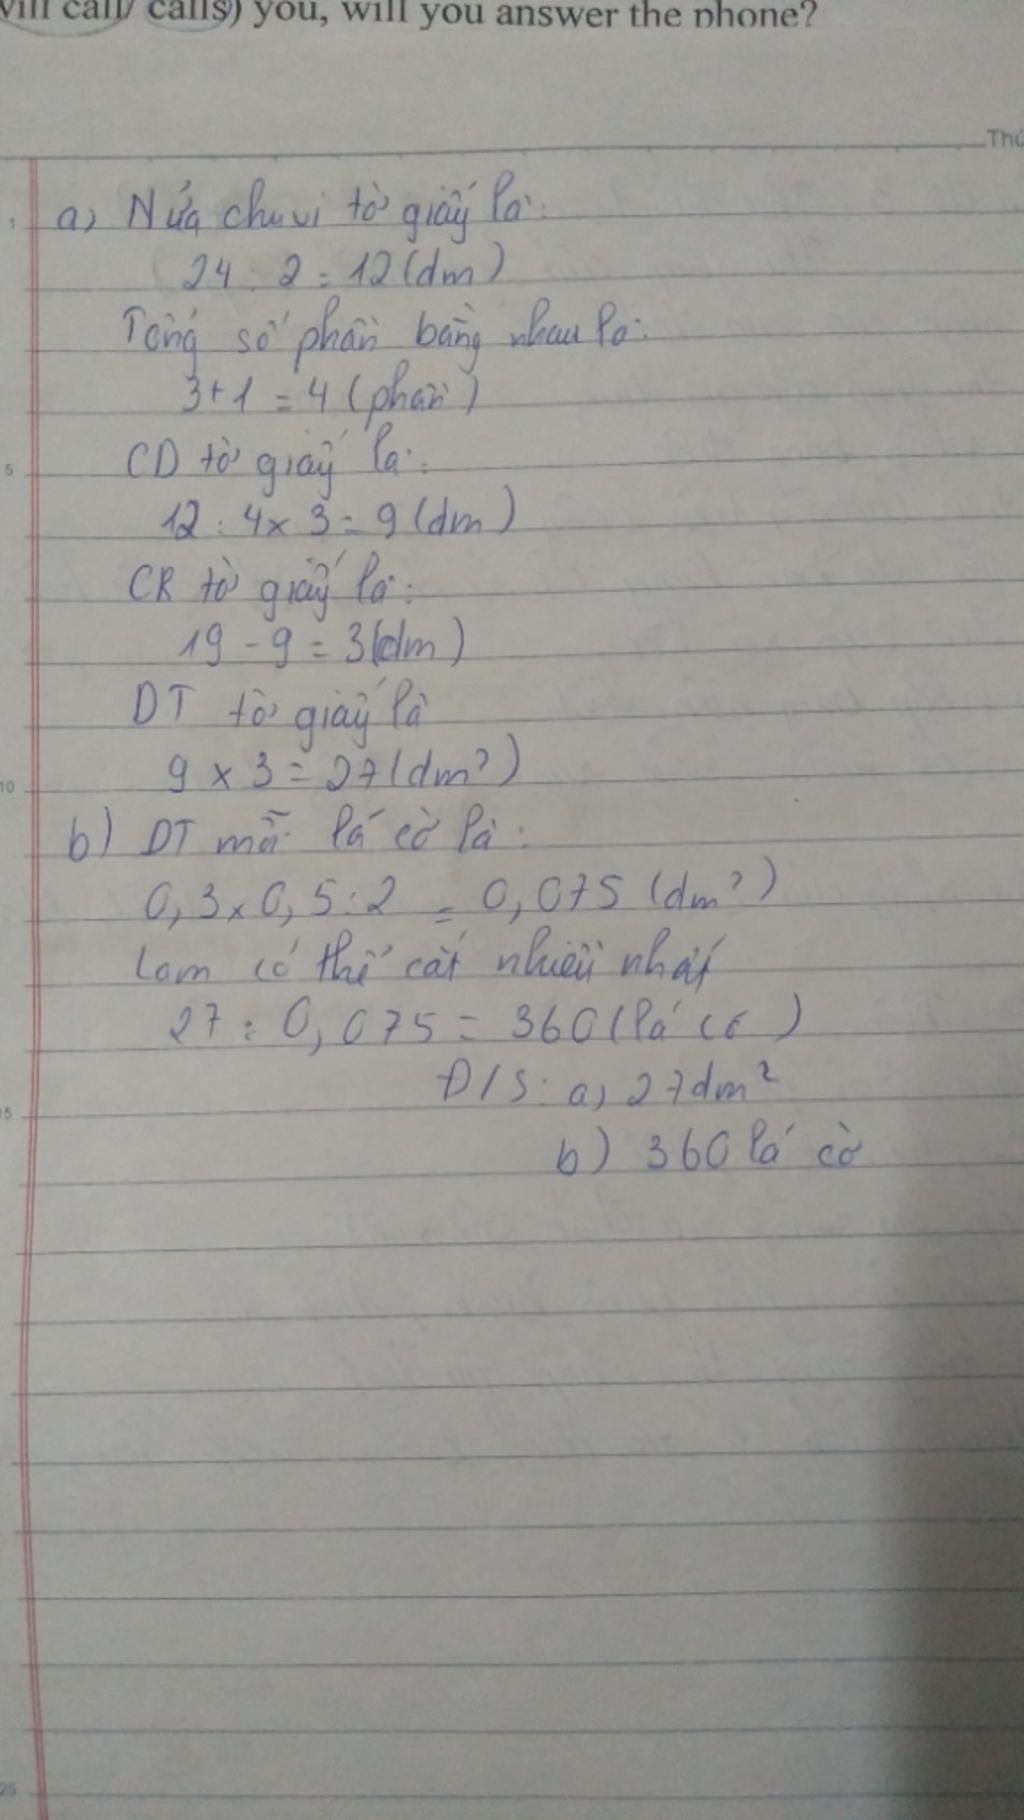 will call/ calls) you, will you answer the phone?
Thứ
1 a) Nửa chu vi tờ giấy là:
24 : 2 = 12 (dm)
Tổng số phần bằng nhau là:
3 + 1 = 4 (phần)
5 CD tờ giấy là:
12 : 4 x 3 = 9 (dm)
CR tờ giấy là:
19 - 9 = 3 (dm)
DT tờ giấy là
10 9 x 3 = 27 (dm²)
b) DT mỗi lá cờ là:
0,3 x 0,5 : 2 = 0,075 (dm²)
Lam có thể cắt nhiều nhất
27 : 0,075 = 360 (lá cờ)
Đ/S: a) 27dm²
15 b) 360 lá cờ